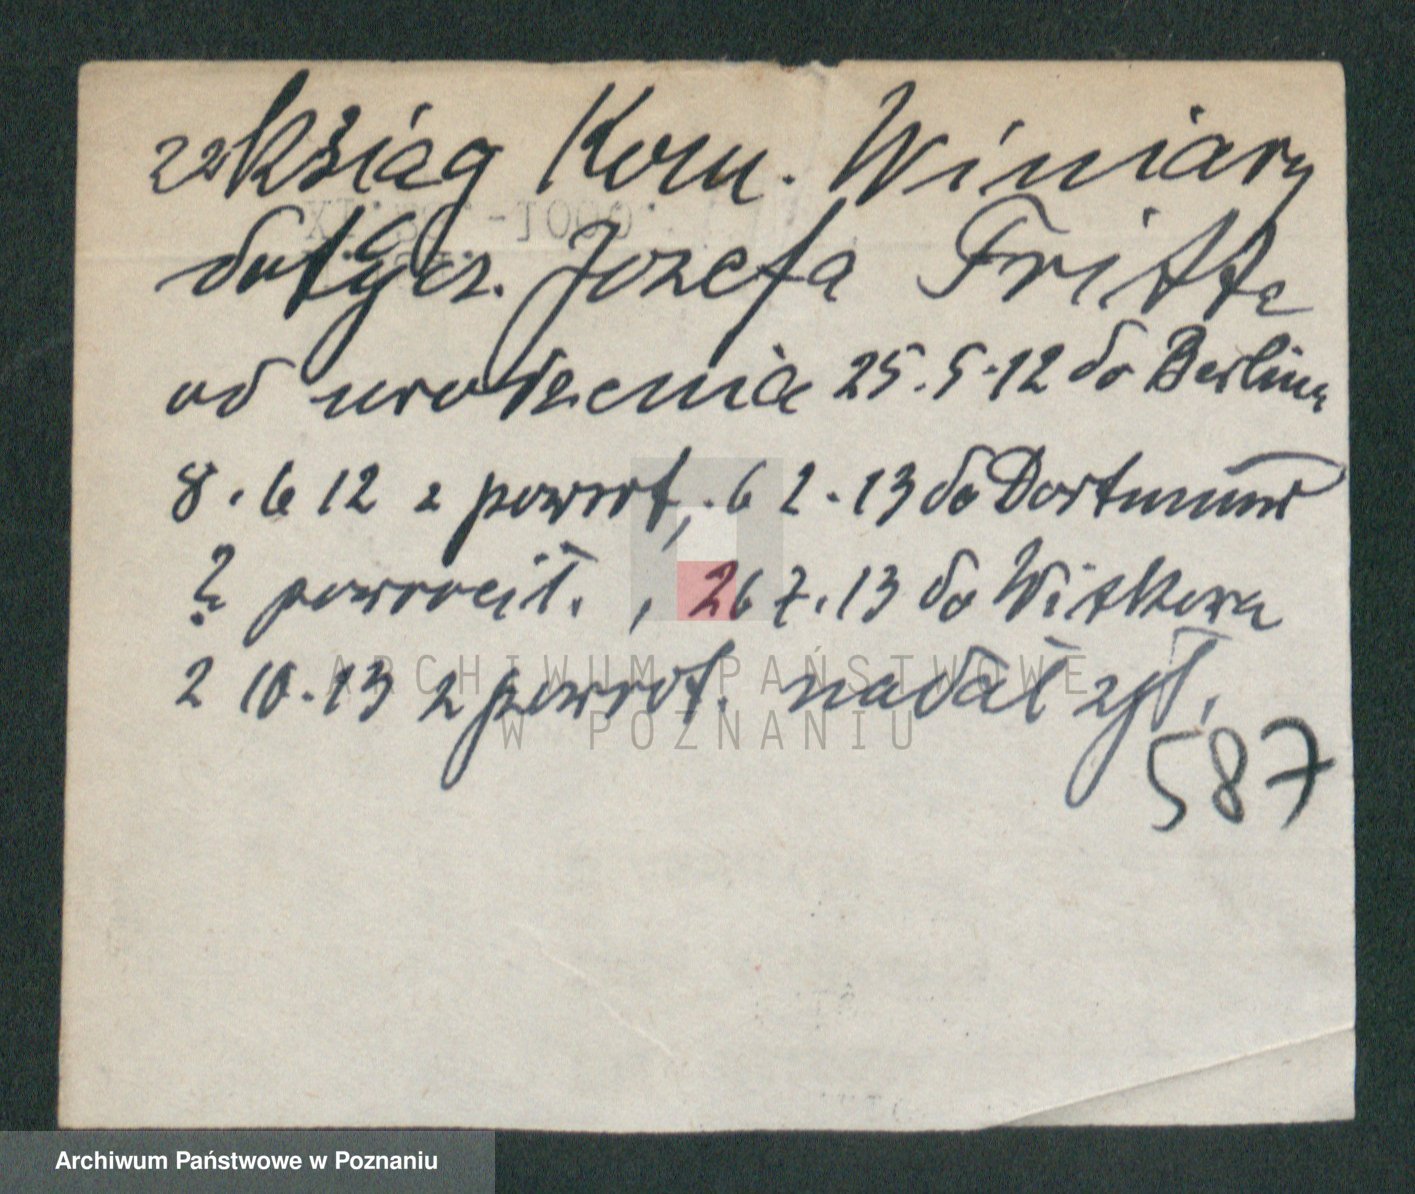 z ksiąg Kom. Winiary
dotycz. Józefa Fritta
od urodzenia 25.5.12 do Berlina
8.6 12 z powrot, 6 2.13 do Dortmund
? powrócił. , 26 7.13 do Witkowa
2 10.13 z powrot. nadal żył.
587
ARCHIWUM PAŃSTWOWE
W POZNANIU
Archiwum Państwowe w Poznaniu